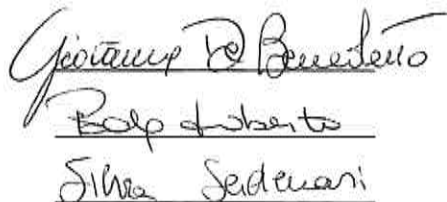 Giovanna De Benedetto
Bolp Umberto
Silvia Sedenari